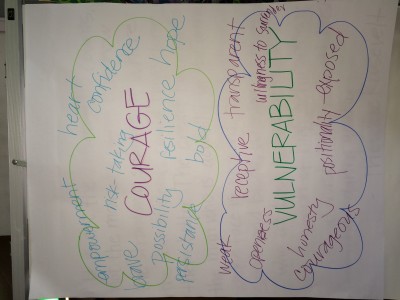 empowerment
heart
confidence
hope
brave
risk-taking
COURAGE
possibility
resilience
persistance
bold
weak
receptive
transparent
openness
VULNERABILITY
honesty
courageous
positionality
exposed